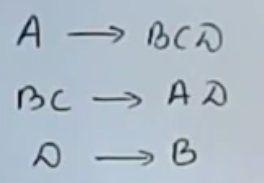 A → BCD
BC → AD
D → B